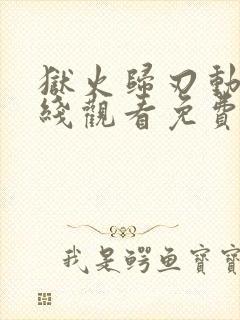 獄火歸刃動
綫觀看免費
我是鳄鱼寶寶